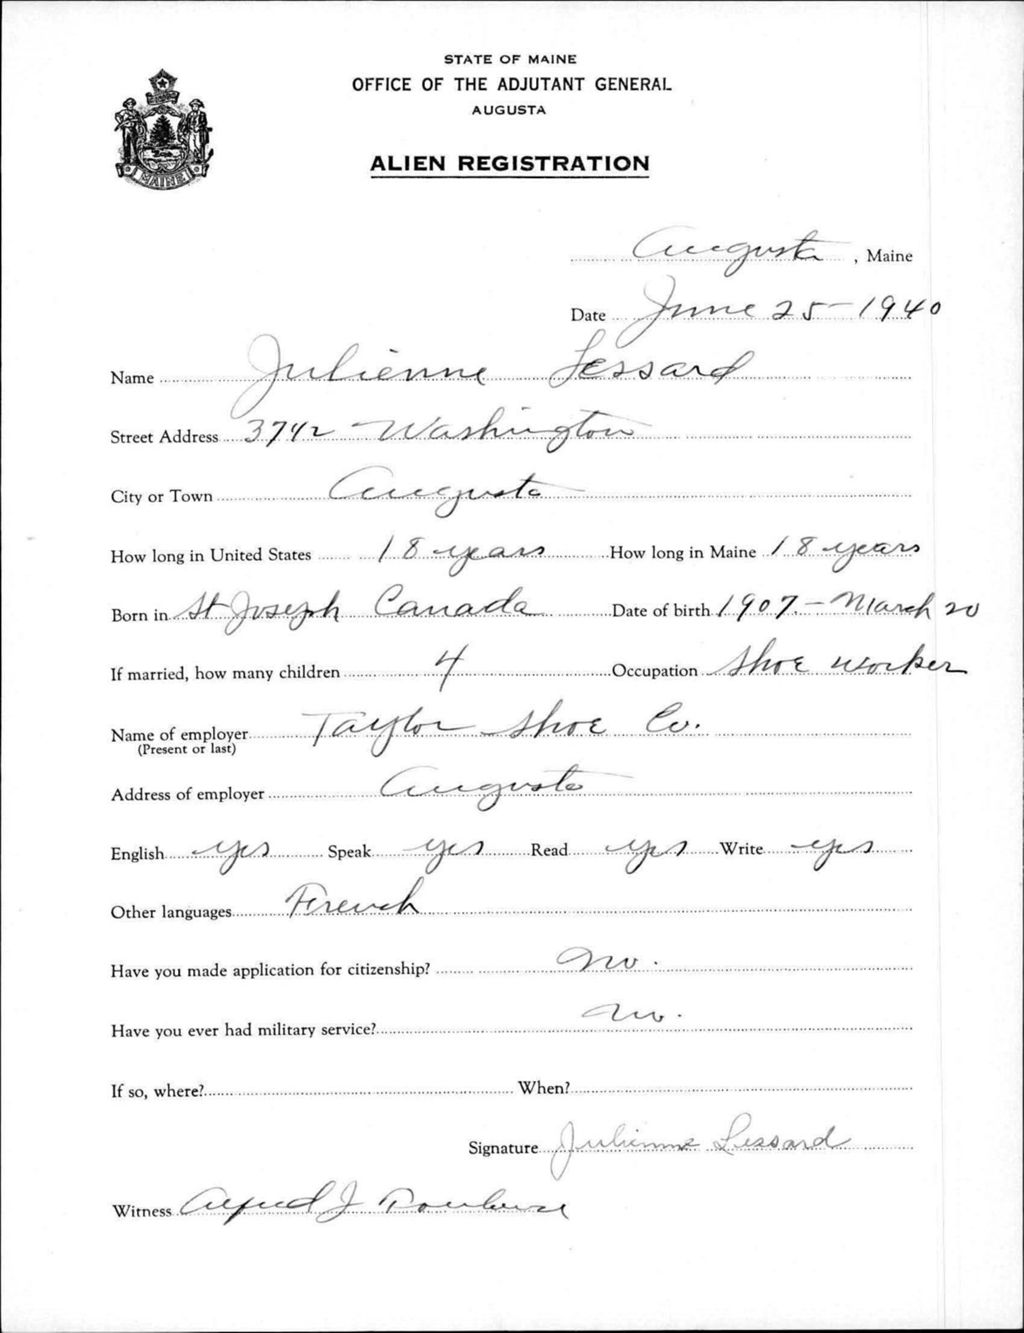 STATE OF MAINE
OFFICE OF THE ADJUTANT GENERAL
AUGUSTA
ALIEN REGISTRATION
MAINE
Augusta, Maine
Date June 25-1940
Name Julienne Lessard
Street Address Washington
City or Town Augusta
How long in United States 18 years How long in Maine 18 years
Born in St Joseph Canada Date of birth 1907-March 20
If married, how many children 4 Occupation Shoe worker
Name of employer Taylor Shoe Co.
(Present or last)
Address of employer Augusta
English yes Speak yes Read yes Write yes
Other languages French
Have you made application for citizenship? No.
Have you ever had military service? No.
If so, where? When?
Signature Julienne Lessard
Witness Alfred J